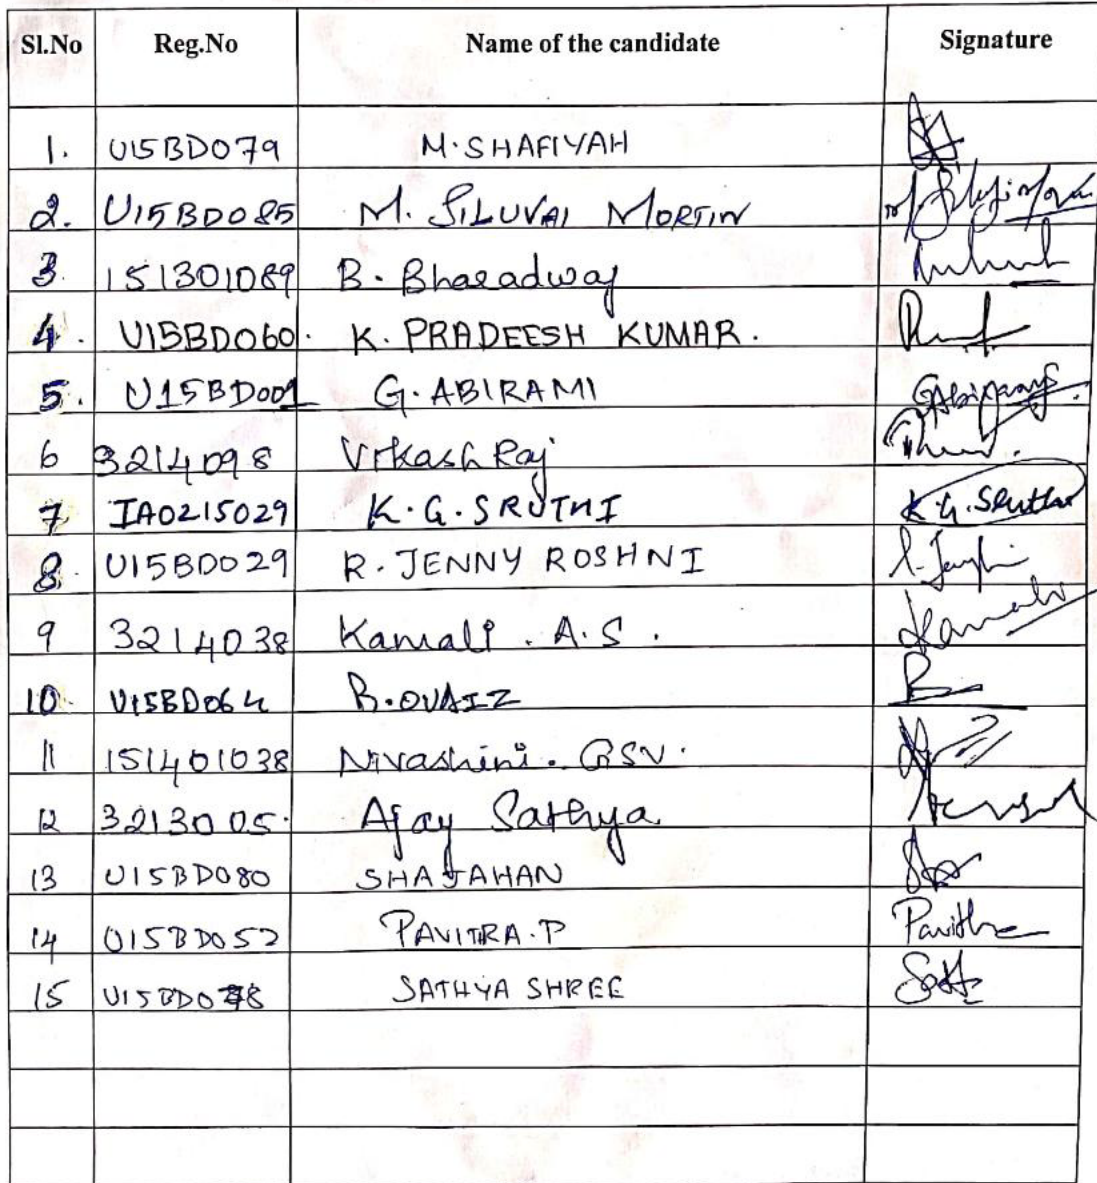 Sl.No Reg.No Name of the candidate Signature
1. U15BD079 M.SHAFIYAH
2. U15BD085 M. SILUVAI MORTIN
3. 151301089 B. Bharadwaj
4. U15BD060. K. PRADEESH KUMAR.
5. U15BD001 G. ABIRAMI GAbirami
6 3214098 Vikash Raj
7 IA0215029 K.G.SRUTHI K.G.Sruthi
8. U15BD029 R. JENNY ROSHNI
9 3214038 Kamali. A.S. Kamali
10. U15BD064 B.OVAIZ
11 151401038 Nivashini. GSV.
12 3213005. Ajay Sathya
13 U15BD080 SHAJAHAN
14 U15BD052 PAVITRA.P Pavithra
15 U15BD078 SATHYA SHREE